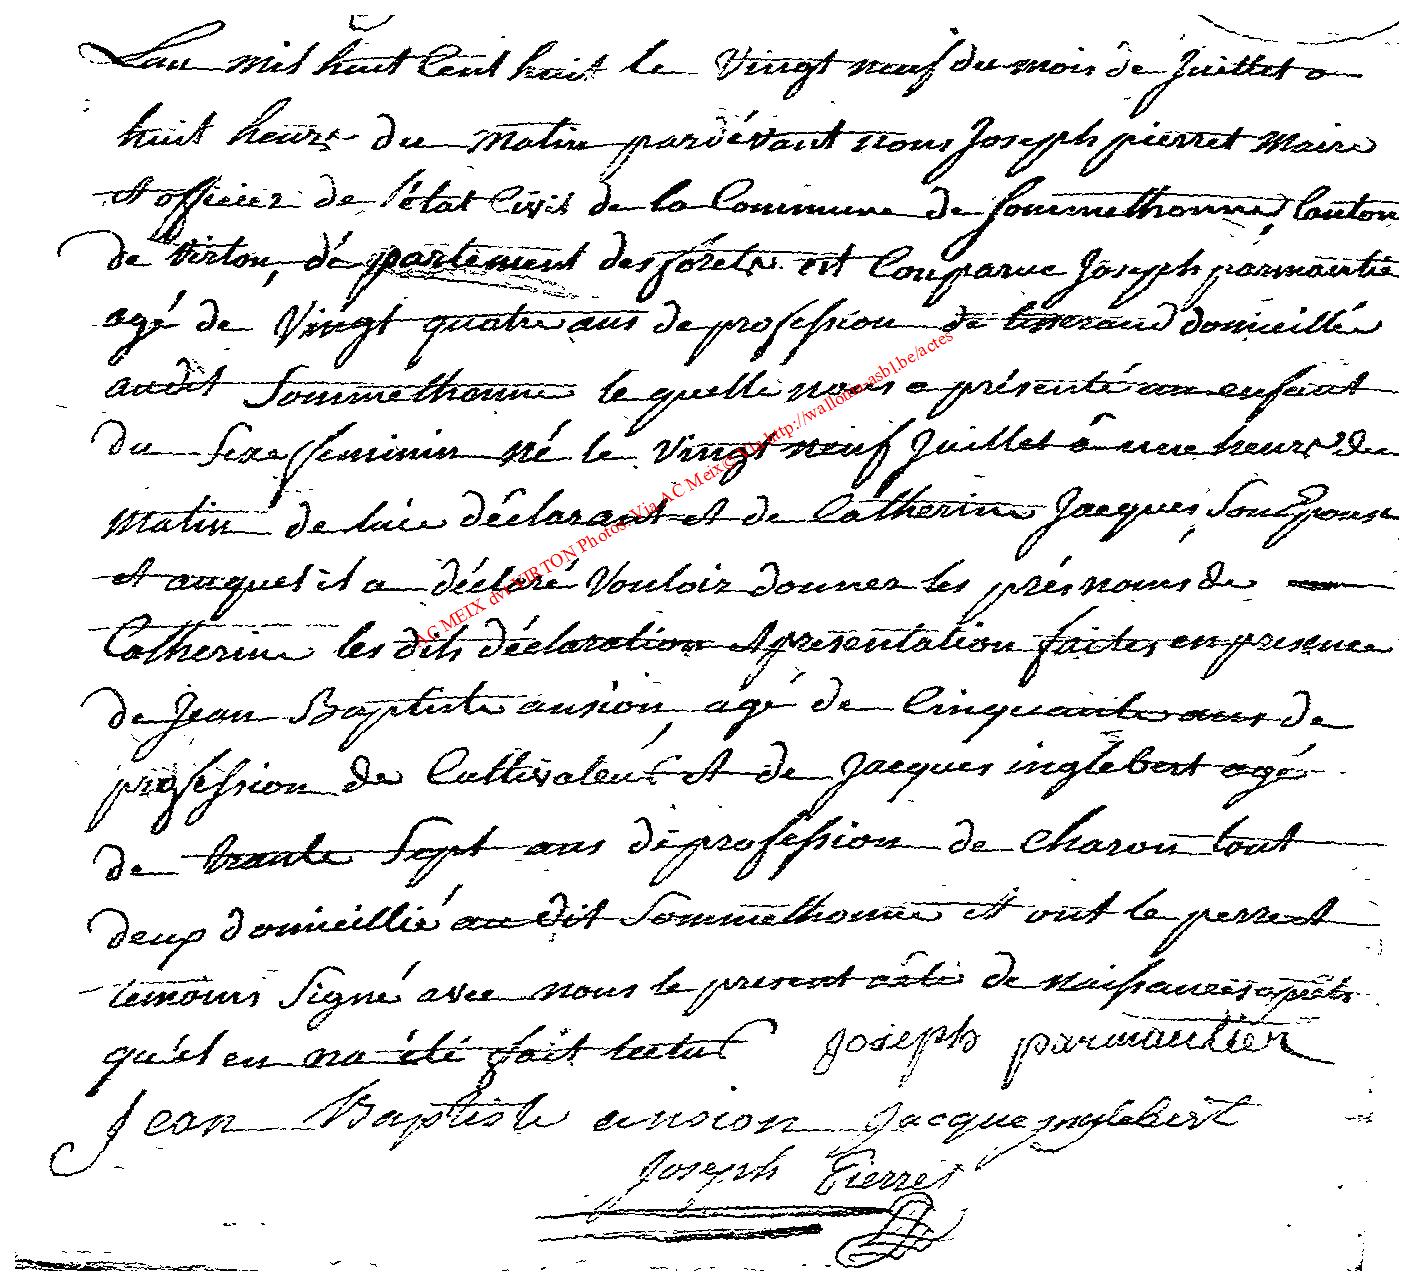 Lan mil huit Cent huit le Vingt neuf du mois de Juillet a
huit heure du Matin pardévant nous Joseph pierret Maire
et officier de l'état Civil de la Commune de Sommethonne, Canton
de Virton, département des forêts est Comparue Joseph parmantie
agé de Vingt quatre ans de profession de tisserand domicillée
audit Sommethonne le quelle nous a présenté un enfant
du Sexe feminin né le Vingt neuf Juillet à une heure du
Matin de luie déclarant et de Catherine Jacques, Son Epouse
et auquel il a déclaré Vouloir donner les présnoms de
Catherine les dits déclaration et presentation faites, en presence
de Jean Baptiste ansion, agé de Cinquante ans de
profession de Cultivateur et de Jacques inglebert agé
de trante Sept ans de profession de Charon tout
deux domicillié au dit Sommethonne et ont le perre et
temoins Signé avec nous le present acte de Naissances après
qu'el en na été fait lectur Joseph parmantier
Jean Baptiste ansion Jacque jnglebert
Joseph Pierret
AC MEIX dvt VIRTON Photos Via AC Meix & Via http://wallonia-asbl.be/actes